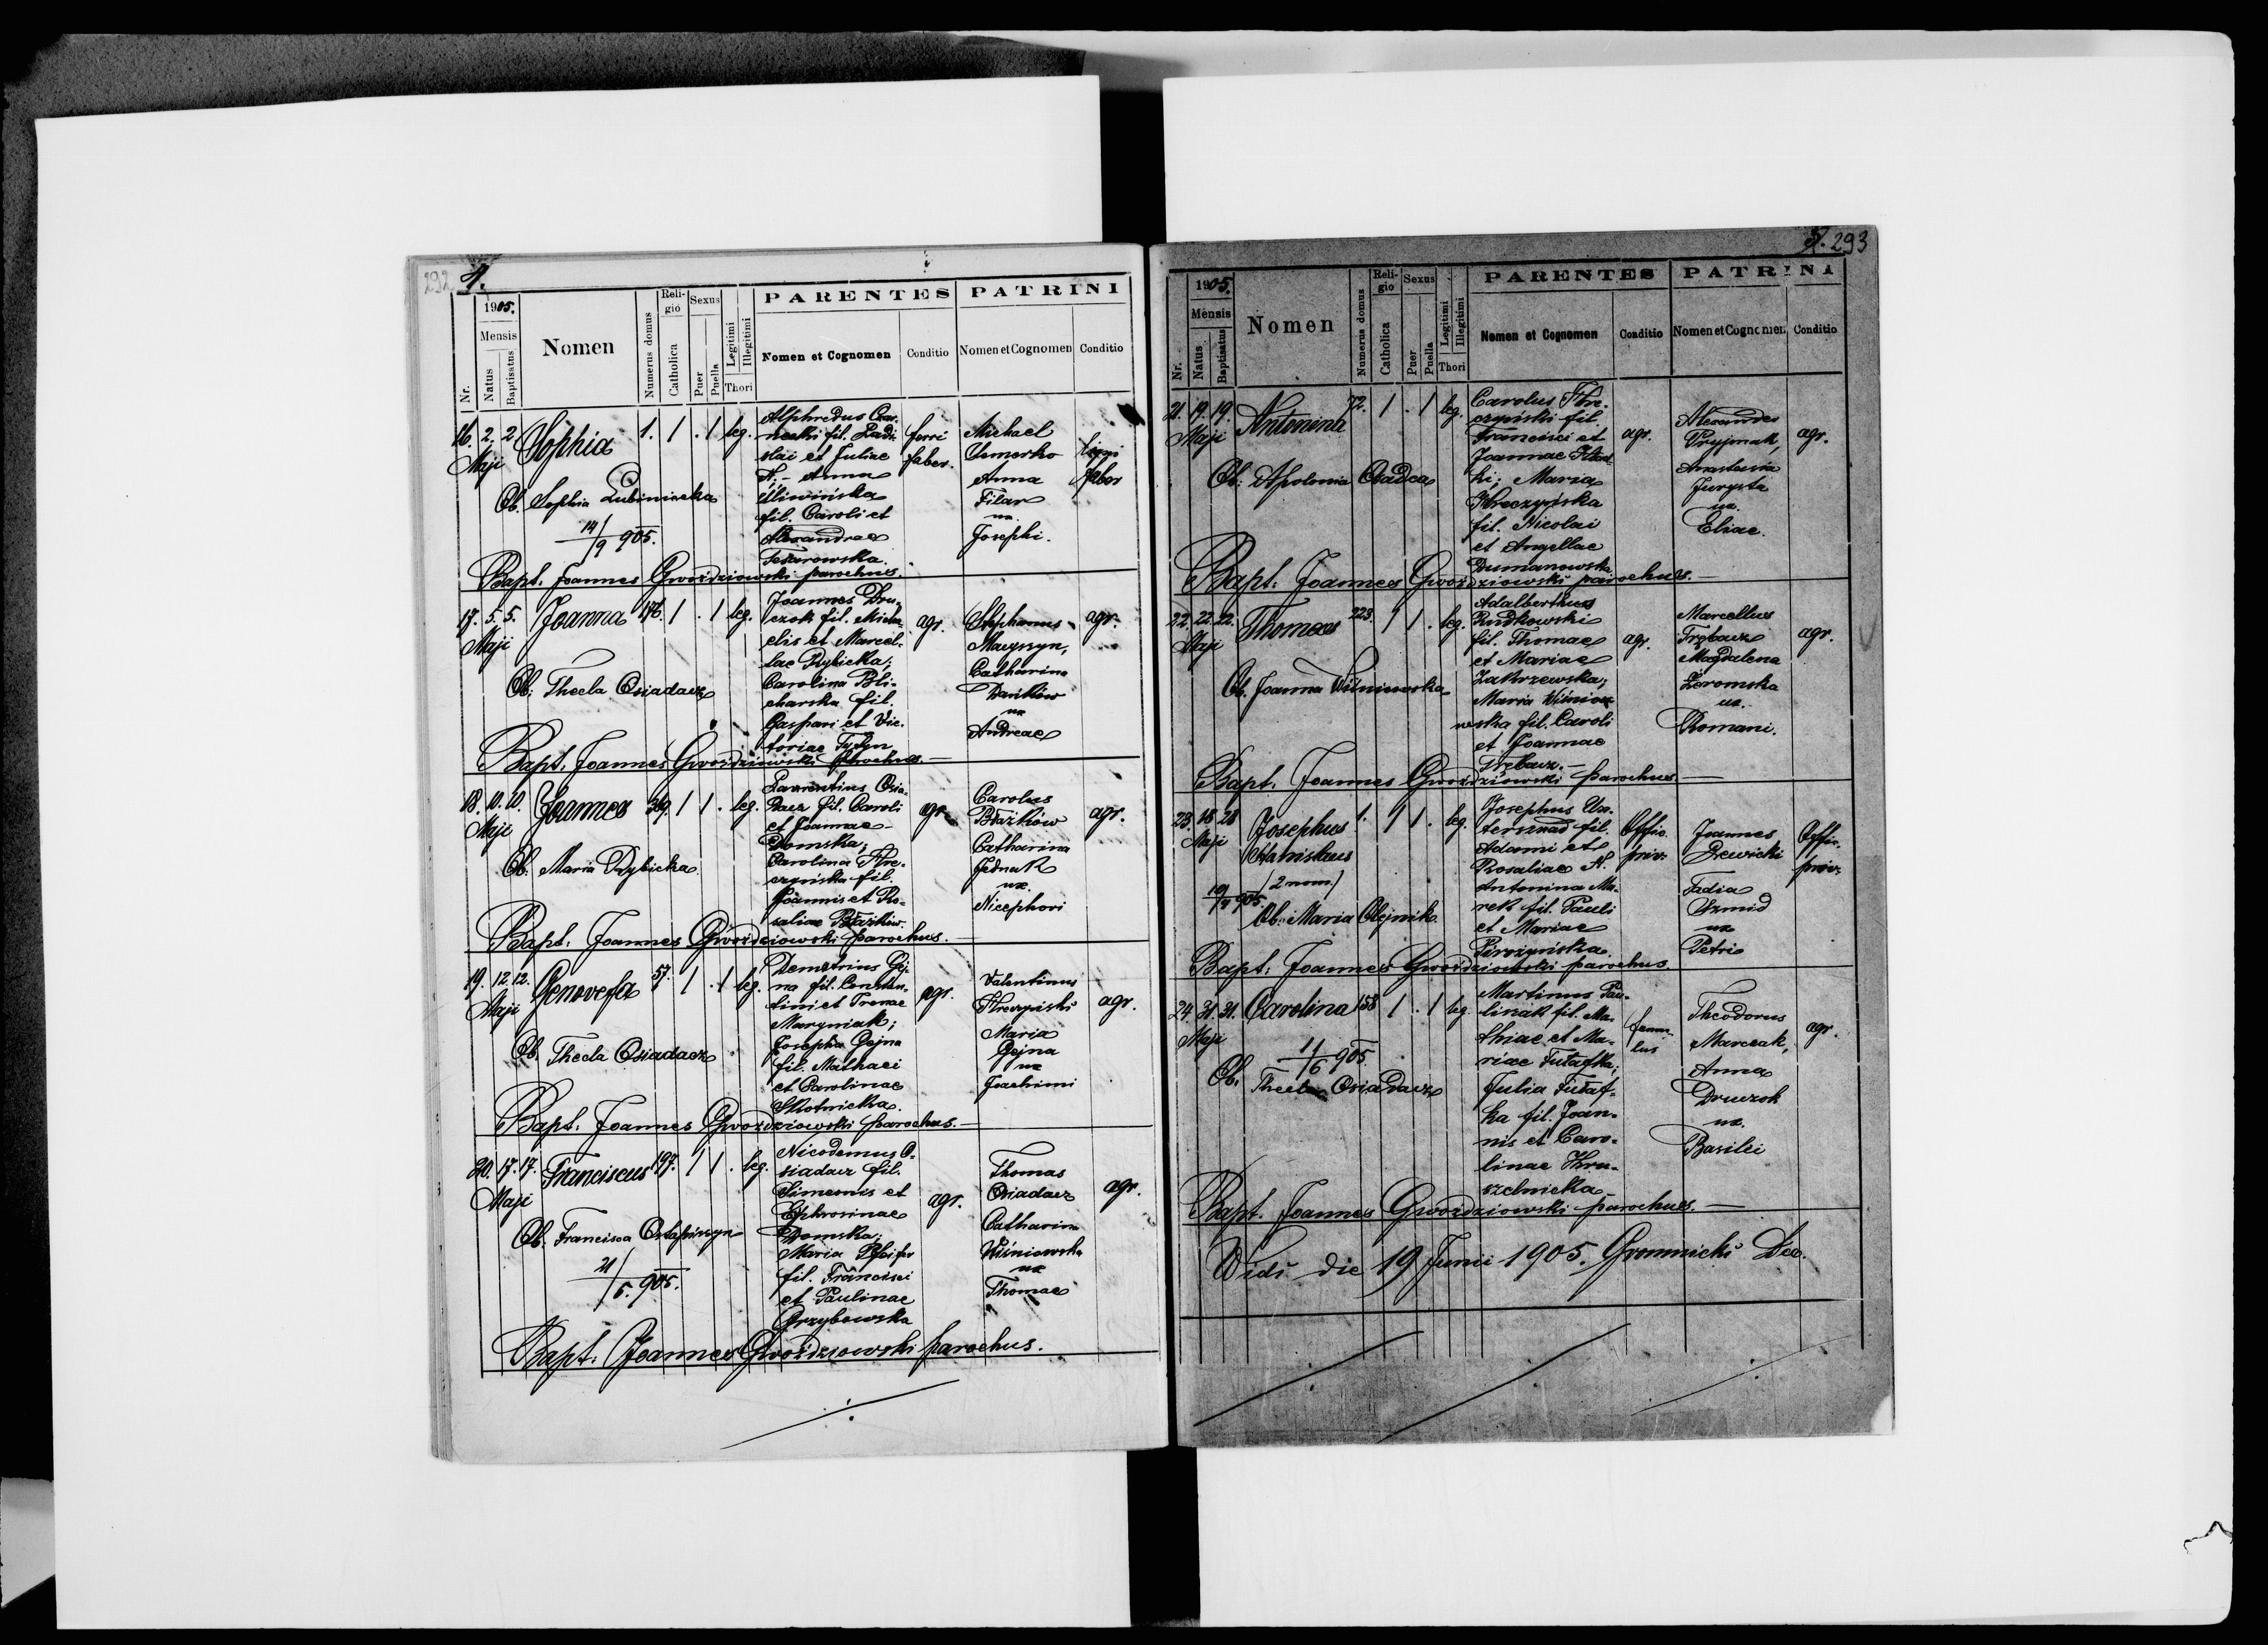 292 4.
1905.
Mensis
Nr.
Natus
Baptisatus
Nomen
Numerus domus
Religio
Catholica
Sexus
Puer
Puella
Legitimi
Illegitimi
Thori
PARENTES
Nomen et Cognomen
Conditio
PATRINI
Nomen et Cognomen
Conditio
16. 2. 2. Maji
Sophia 1. 1 . 1 leg.
Ob. Sophia Lubiniecka
14/9 905.
Alphredus Czar-
necki fil. Ladi-
slai et Juliae
N; - Anna
Śliwińska
fil. Caroli et
Alexandrae
ferri
faber.
Michael
Anna
Filar
ux.
Josephi.
ligni
faber
Bapt. Joannes Gwoździowski parochus.
17. 5. 5. Maji
Joanna 176. 1 . 1 leg.
Ob: Thecla Osiadacz
Joannes Dru-
czok fil. Micha-
elis et Marcel-
lae Dybicka;
Carolina Bli-
charska fil.
Gaspari et Vic-
toriae
agr.
Stephanus
Catharina
ux
Andreae
agr.
Bapt. Joannes Gwoździowski parochus.—
18. 10. 10. Maji
Joannes 369. 1 1 . leg.
Ob: Maria Dybicka
Laurentius Osia-
dacz fil. Caroli
et Joannae
Domska;
Carolina Hre-
czyńska fil.
Joannis et Ro-
saliae Błażków.
agr.
Carolus
Błażków
Catharina
Jednak
ux.
Nicephori
agr.
Bapt: Joannes Gwoździowski parochus.—
19. 12. 12. Maji
Genovefa 57. 1 . 1 leg.
Ob. Thecla Osiadacz
Demetrius Gej-
na fil. Constan-
tini et Irenae
Maryniak;
Josepha Gejna
fil. Mathaei
et Carolinae
Skotnicka.
agr.
Valentinus
Hreczyński
Maria
Gejna
ux
Joachimi
agr.
Bapt. Joannes Gwoździowski parochus.—
20. 17. 17. Maji
Franciscus 197. 1 1 . leg.
Ob: Francisca
21/5. 905.
Nicodemus O-
siadacz fil.
Simeonis et
Ephrosinae
Domska;
Maria
fil. Francisci
et Paulinae
Grzybowska
agr.
Thomas
Osiadacz
Catharina
Wiśniowska
ux
Thomae
agr.
Bapt: Joannes Gwoździowski parochus.
5. 293
1905.
Mensis
Nr.
Natus
Baptisatus
Nomen
Numerus domus
Religio
Catholica
Sexus
Puer
Puella
Legitimi
Illegitimi
Thori
PARENTES
Nomen et Cognomen
Conditio
PATRINI
Nomen et Cognomen
Conditio
21. 19. 19. Maji
Antonina 72. 1 . 1 leg.
Ob: Apolonia
Carolus Hre-
czyński fil.
Francisci et
Joannae
Maria
Hreczyńska
fil. Nicolai
et Angellae
Dumanowska
agr.
Alexander
Pryjmak,
Anastasia
Jurysta
ux.
Eliae.
agr.
Bapt: Joannes Gwoździowski parochus.—
22. 22. 22. Maji
Thomas 223. 1 1 . leg.
Ob. Joanna Wiśniowska
Adalberthus
Rudkowski
fil. Thomae
et Mariae
Zakrzewska;
Maria Wiśnio-
wska fil. Caroli
et Joannae
Trębacz.—
agr.
Marcellus
Trębacz
Magdalena
Żeromska
ux.
Romani.
agr.
Bapt. Joannes Gwoździowski parochus—
23. 18 28 Maji
Josephus 1. 1 1 . leg.
Stanislaus
(2 nom.)
905.
Ob: Maria Olejnik
Josephus Un-
terszнад fil.
Adami et
Rosaliae N.
Antonina Ma-
rek fil. Pauli
et Mariae
Pirożyńska
Offic.
priv.
Joannes
Drewicki
Szmid
ux
Petri
Offic.
priv.
Bapt: Joannes Gwoździowski parochus.
24. 31. 31. Maji
Carolina 158 1 . 1 leg.
11/6 905.
Ob. Thecla Osiadacz
Martinus Pau-
liszak fil. Ma-
thiae et Ma-
riae Futafka;
Julia Futaf-
ka fil. Joan-
nis et Caro-
linae Hru-
szelnicka
famu-
lus
Theodorus
Marczak,
Anna
Druczok
ux.
Basilii
agr.
Bapt. Joannes Gwoździowski parochus.—
Vidi die 19 Junii 1905. Gromnicki Dec.